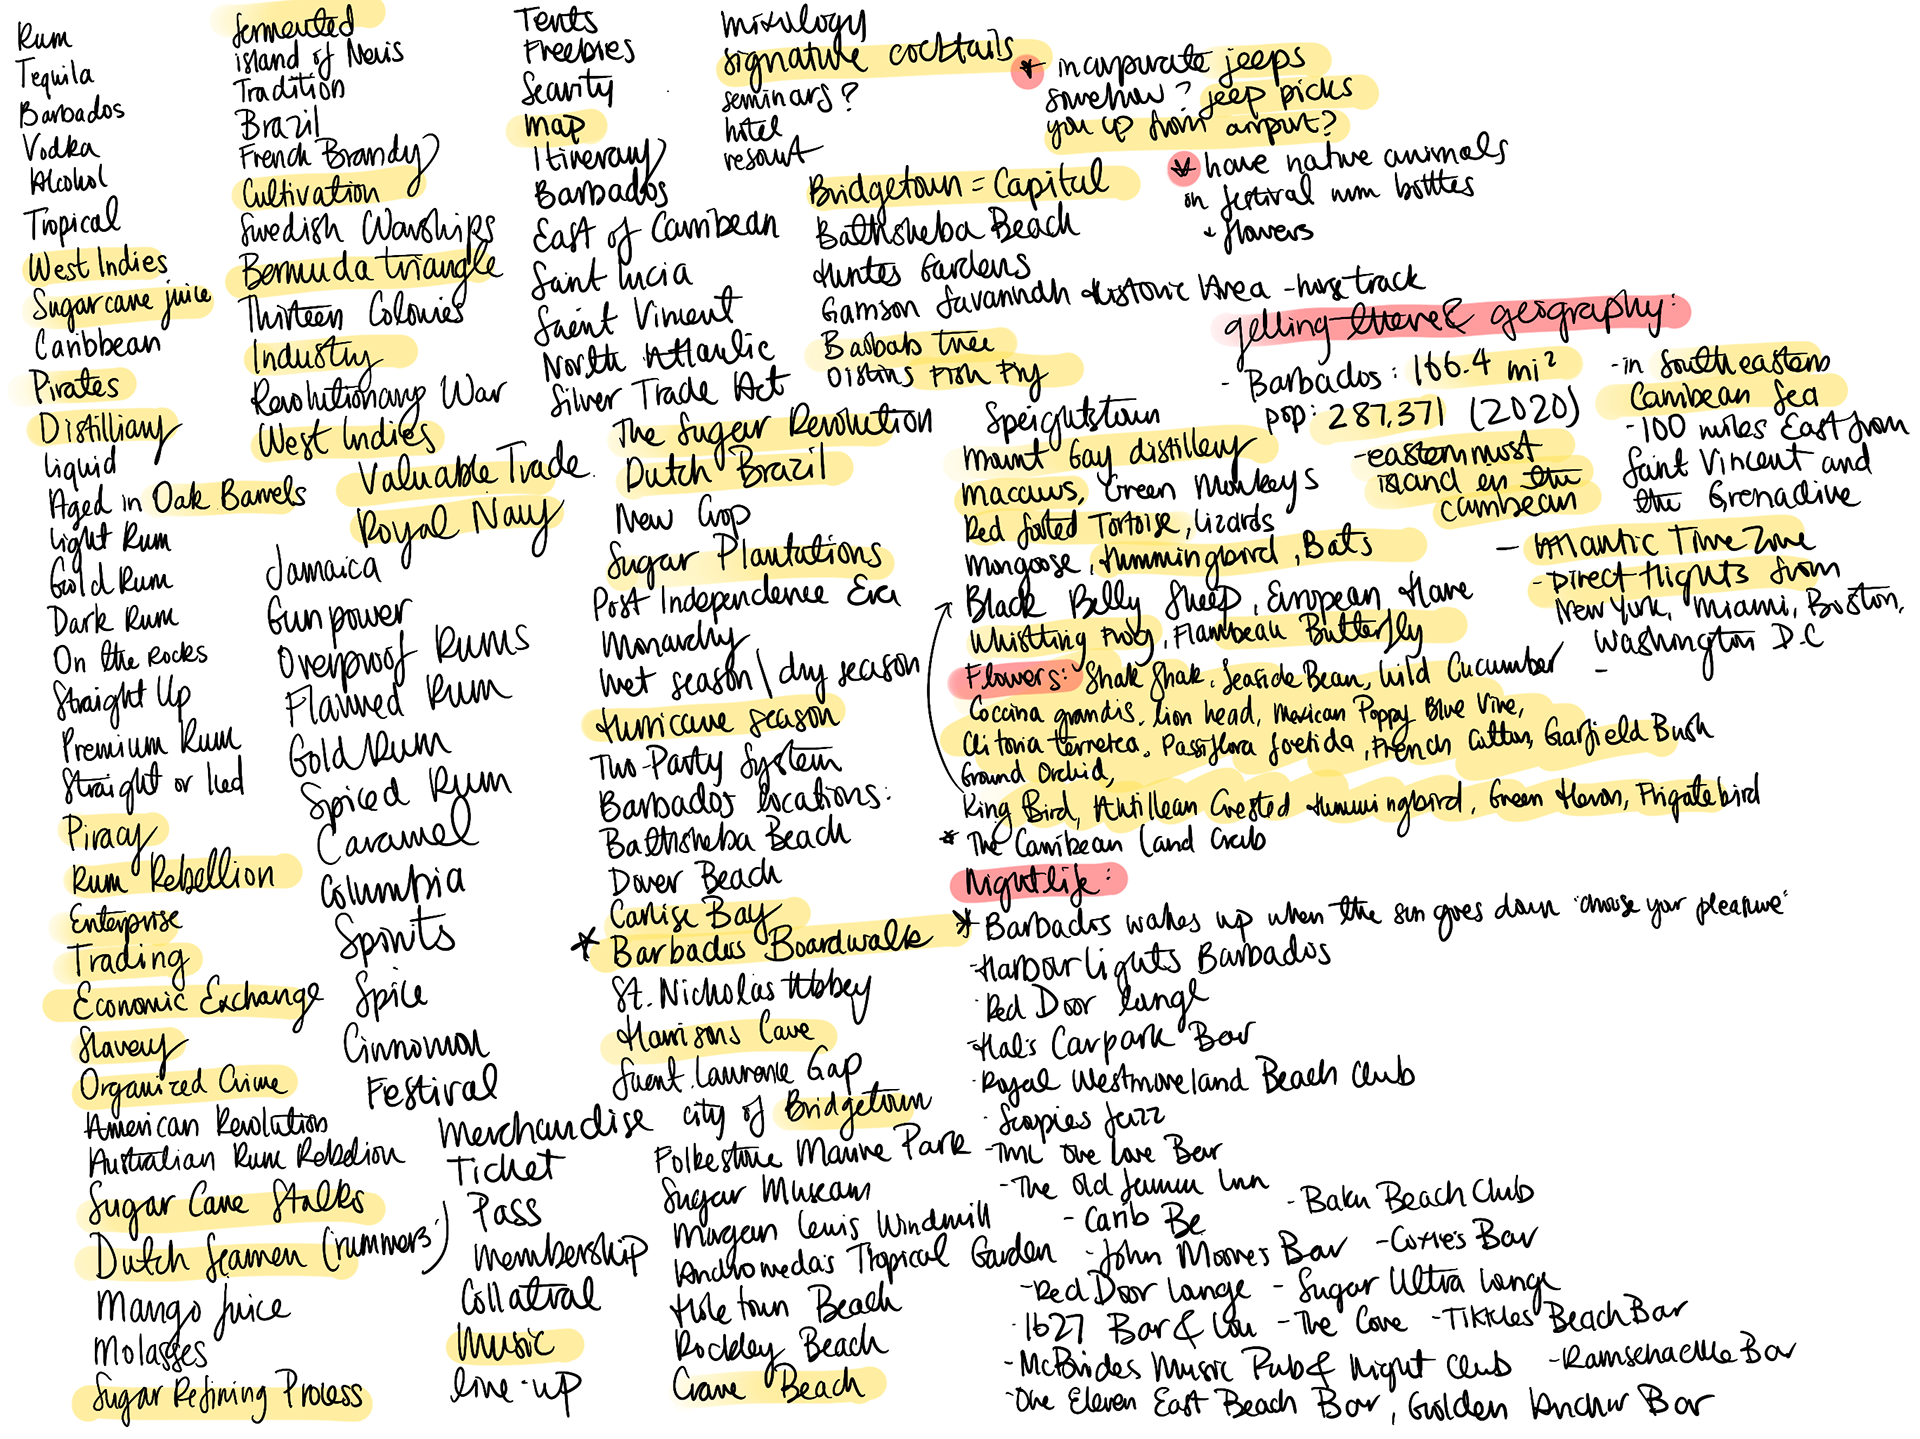 Rum
Tequila
Barbados
Vodka
Alcohol
Tropical
West Indies
Sugarcane juice
Caribbean
Pirates
Distilliary
liquid
Aged in Oak Barrels
Light Rum
Gold Rum
Dark Rum
On the Rocks
Straight Up
Premium Rum
Straight or Iced
Piracy
Rum Rebellion
Enterprise
Trading
Economic Exchange
Slavery
Organized Crime
American Revolution
Australian Rum Rebelion
Sugar Cane Stalks
Dutch Seamen (rummers)
Mango Juice
Molasses
Sugar Refining Process
fermented
island of Nevis
Tradition
Brazil
French Brandy
Cultivation
Swedish Warships
Bermuda triangle
Thirteen Colonies
Industry
Revolutionary War
West Indies
Valuable Trade
Royal Navy
Jamaica
Gunpower
Overproof Rums
Flavored Rum
Gold Rum
Spiced Rum
Caramel
Columbia
Spirits
Spice
Cinnomon
Festival
Merchandise
Ticket
Pass
Membership
Collatral
Music
line-up
Tents
Freebies
Security
map
Itinerary
Barbados
East of Carribean
Saint Lucia
Saint Vincent
North Atlantic
Silver Trade Act
The Sugar Revolution
Dutch Brazil
New Crop
Sugar Plantations
Post Independence Era
Monarchy
wet season/dry season
Hurricane season
Two-Party System
Barbados locations:
Bathsheba Beach
Dover Beach
Carlise Bay
* Barbados Boardwalk
St. Nicholas Abbey
Harrisons Cave
Saent. Lawrence Gap
city of Bridgetown
Folkestone Marine Park
Sugar Museam
Morgan Lewis Windmill
Andromeda's Tropical Garden
Hole town Beach
Rockley Beach
Crane Beach
mixology
signature cocktails
seminars?
hotel
resort
* incorporate jeeps
somehow? jeep picks
you up from airport?
* have native animals
on festival rum bottles
+ flowers
Bridgetown = Capital
Bathsheba Beach
Huntes Gardens
Garrison Savannah Historic Area - horse track
Baobab tree
Oistins Fish Fry
Speightstown
Mount Gay distillery
Macaws, Green Monkeys
Red footed Tortoise, lizards
Mongoose, Hummingbird, Bats
Black Belly Sheep, European Hare
Whistling Frog, Flambeau Butterfly
Flowers: Shak Shak, Seaside Bean, Wild Cucumber
Coccina grandis, lion head, Mexican Poppy Blue Vine,
Clitoria ternetea, Passiflora foetida, French Cotton, Garfield Bush
Ground Orchid,
King Bird, Antillean Crested Hummingbird, Green Heron, Frigatebird
* The Carribean Land Crab
getting there & geography:
- Barbados: 166.4 mi²
pop: 287,371 (2020)
- easternmost
island in the
carribean
- in Southeastern
Carribean Sea
- 100 miles East from
Saint Vincent and
the Grenadine
- Atlantic Time Zone
- Direct flights from
New York, Miami, Boston,
Washington D.C
-
Nightlife:
* Barbados wakes up when the sun goes down "choose your pleasure"
- Harbour Lights Barbados
- Red Door lounge
- Hal's Carpark Bar
- Royal Westmoreland Beach Club
- Scopies Jazz
- TML One Love Bar
- The Old Jamm Inn
- Baku Beach Club
- Carib Be
- John Moore's Bar
- Coxie's Bar
- Red Door Lounge
- Sugar Ultra Lounge
- 1627 Bar & Lou
- The Cove
- Tikkles Beach Bar
- McBrides Music Pub & Night Club
- Ramsehaelle Bar
- One Eleven East Beach Bar, Golden Anchor Bar